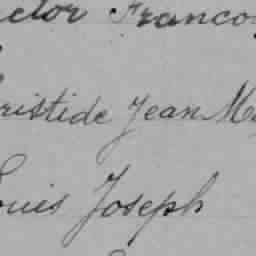 ctor Franco
ristide Jean M
ouis Joseph